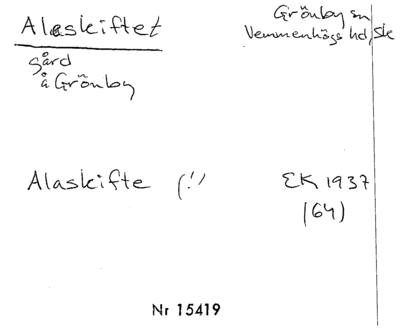 Alaskiftet
Grönby sn
Vemmenhögs hd, Sk
gård
å Grönby
Alaskifte (!)
EK 1937
(64)
Nr 15419